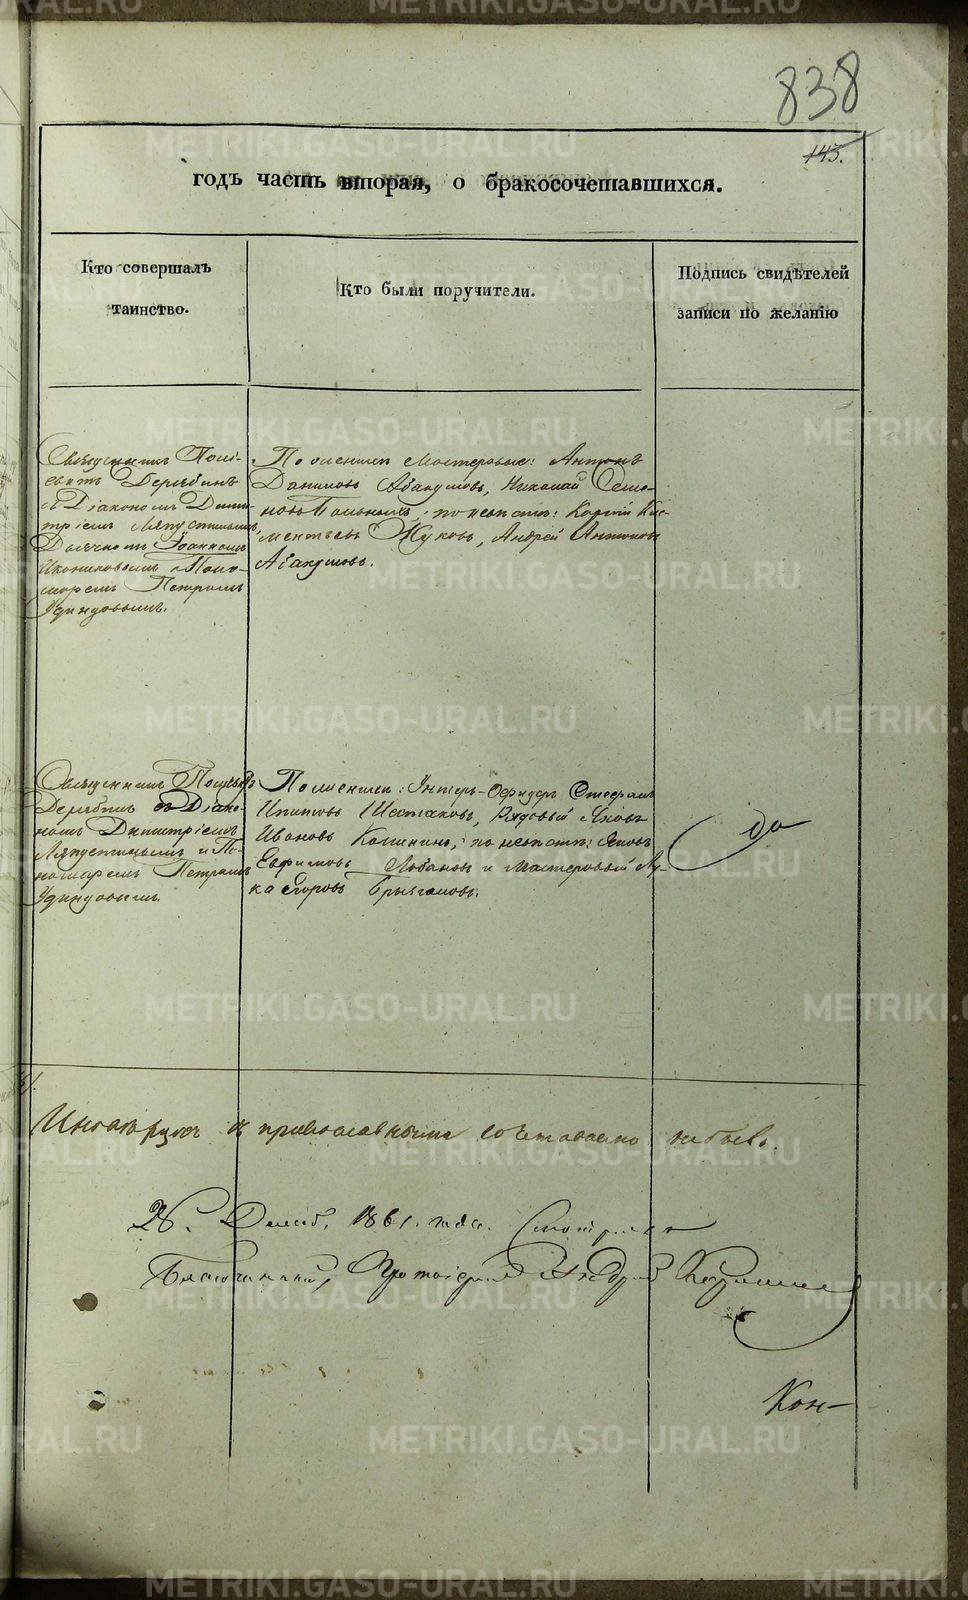 838
145.
годъ часть вторая, о бракосочетавшихся.
Кто совершалъ
таинство.
Кто были поручители.
Подпись свидѣтелей
записи по желанію
Священникъ Полі-
евктъ Дерябинъ
съ Діакономъ Дими-
тріемъ Ляпустинымъ,
Дьячкомъ Іоанномъ
Иконниковымъ и Поно-
маремъ Петромъ
Удинцовымъ.
По женихѣ Мастеровые: Антонъ
Данимовъ Абакумовъ, Николай Семе-
новъ; по невѣстѣ: Карпъ Кли-
ментьевъ Жуковъ, Андрей Антоновъ
Абакумовъ.
Священникъ Поліевктъ
Дерябинъ съ Діако-
номъ Димитріемъ
Ляпустинымъ и По-
номаремъ Петромъ
Удинцовымъ.
По женихѣ: Унтеръ-Офицеръ Стефанъ
Ипатовъ Шестаковъ, Рядовый Яковъ
Ивановъ Калининъ; по невѣстѣ: Яковъ
Евфимовъ Лобановъ и Мастеровый Лу-
ка Егоровъ Брызгаловъ.
до
православными небыло.
26. Декаб. 1861 года. Смотрѣлъ
Благочинный, Протоіерей Андрей
Кон-
METRIKI.GASO-URAL.RU